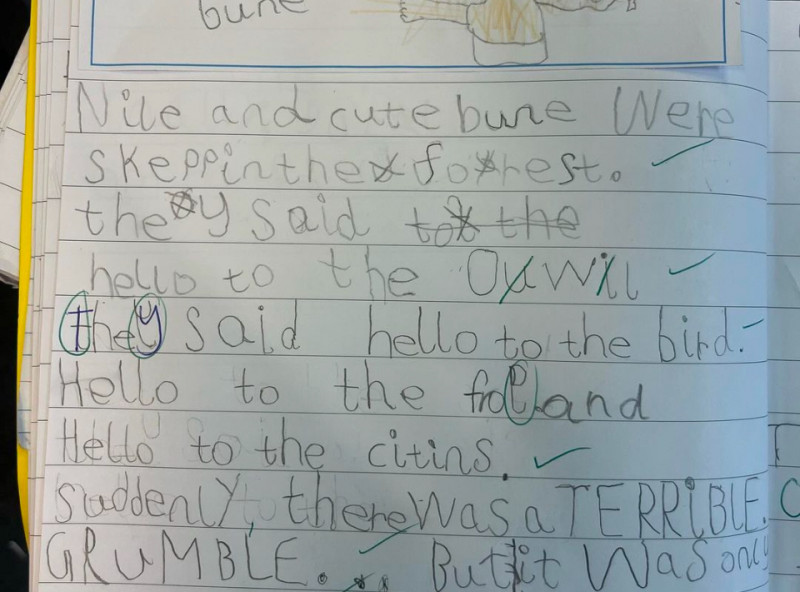 bune
Nile and cute bune Were
skeppin the forest.
they said to the
hello to the Owil
they said hello to the bird.
Hello to the frol and
Hello to the citins.
suddenly, there Was a TERRIBLE.
GRUMBLE... But it Was only